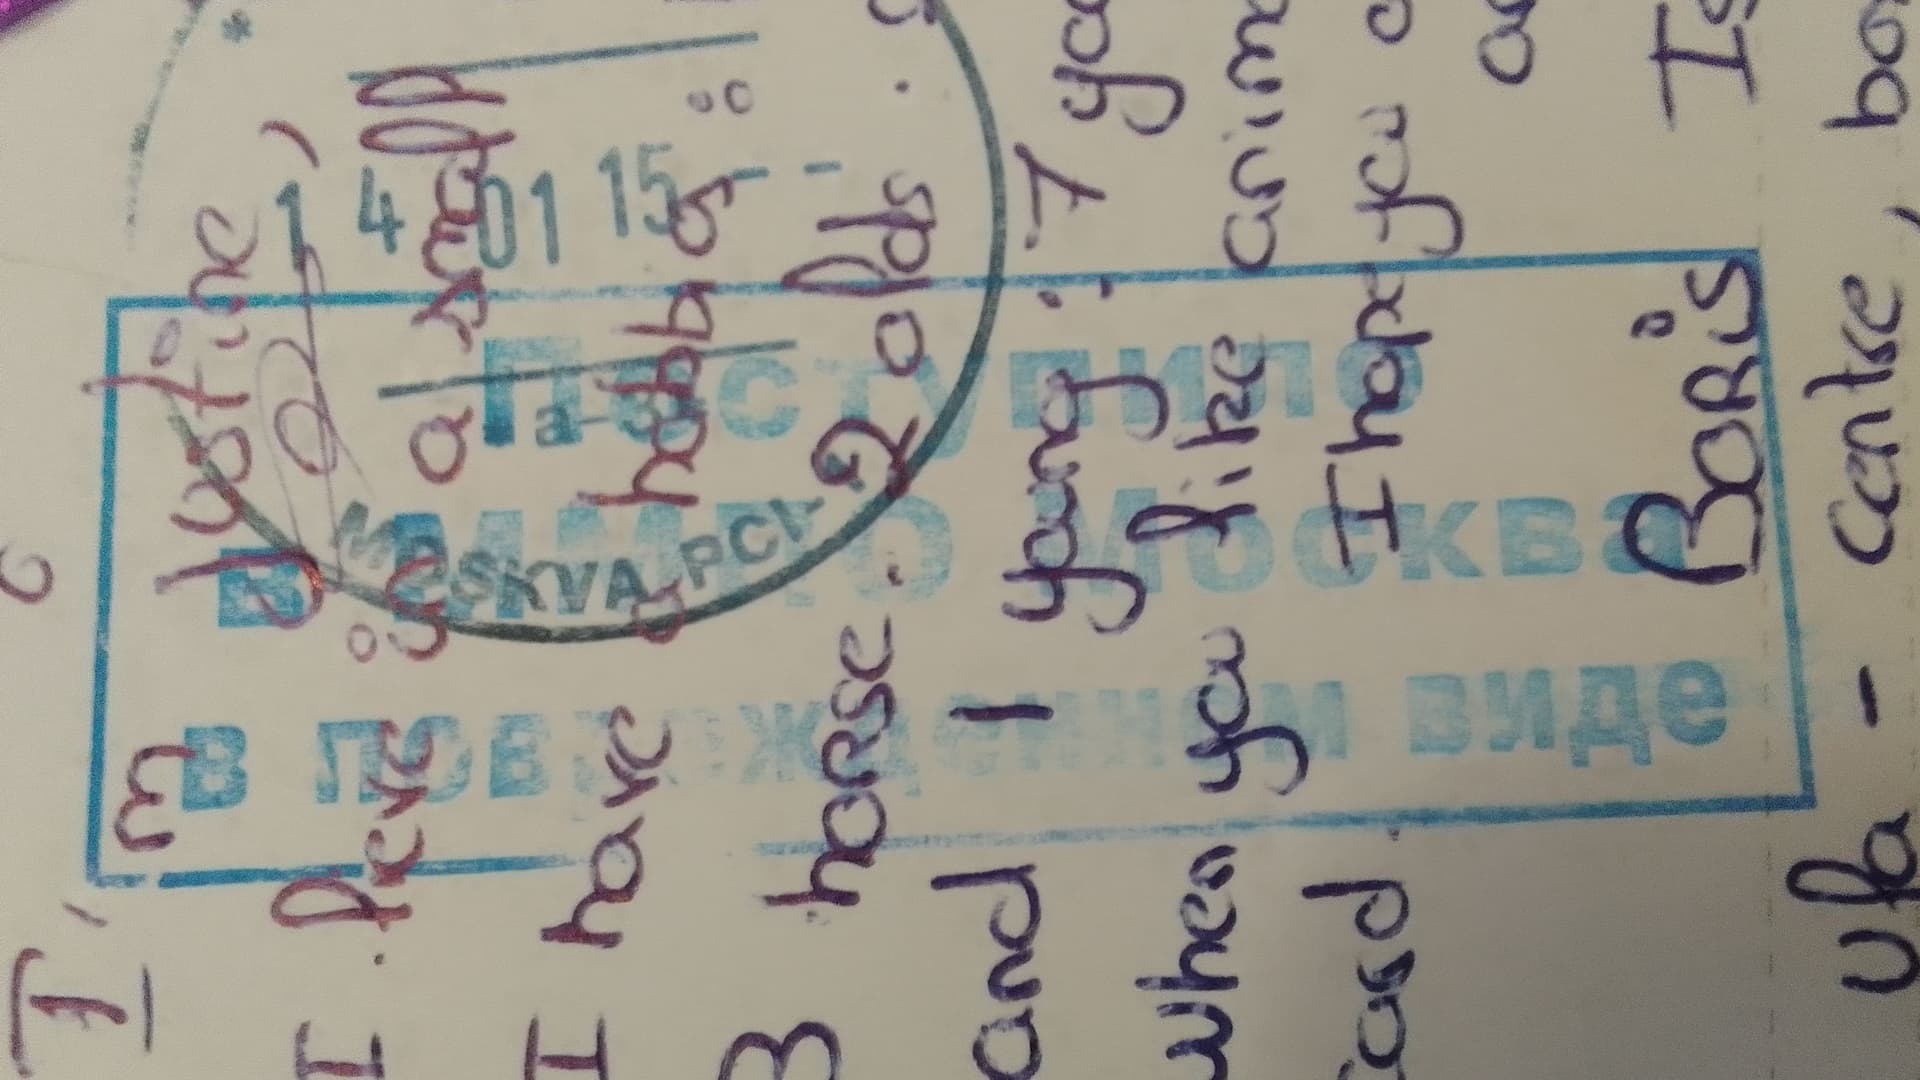 I'm Justine,
I leve in a small
I have a hobbys :
3 horse. 2 olds.
and 1 young : 7 ya
when you like anim
card. I hope you
Boris Is
ufa - centre, bo
14 01 15 --
MOSKVA PCI-
Поступило
в ММПО Москва
в поврежденном виде